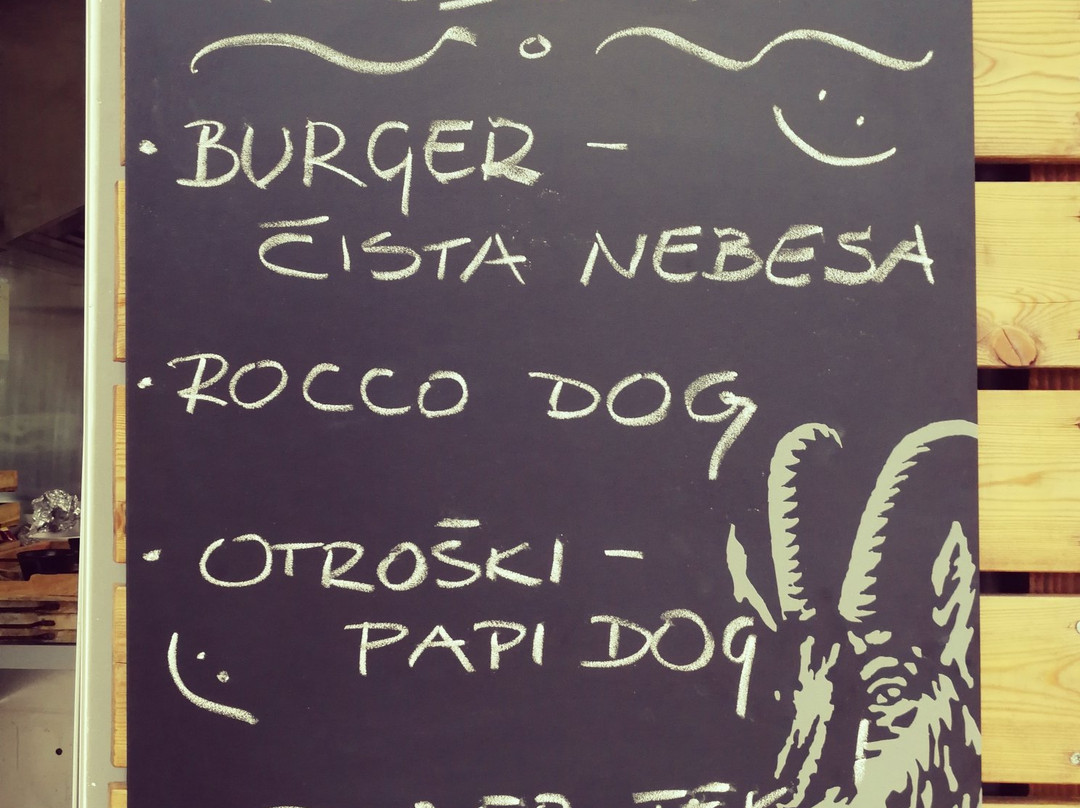 • BURGER -
ČISTA NEBESA
• ROCCO DOG
• OTROŠKI -
PAPI DOG